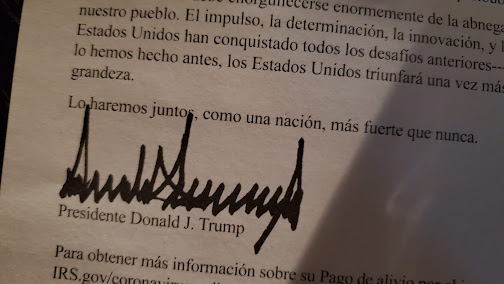 enorgullecerse enormemente de la abnega
nuestro pueblo. El impulso, la determinación, la innovación, y l
Estados Unidos han conquistado todos los desafíos anteriores---
lo hemos hecho antes, los Estados Unidos triunfará una vez más
grandeza.
Lo haremos juntos, como una nación, más fuerte que nunca.
Presidente Donald J. Trump
Para obtener más información sobre su Pago de alivio por
IRS.gov/coronavirus